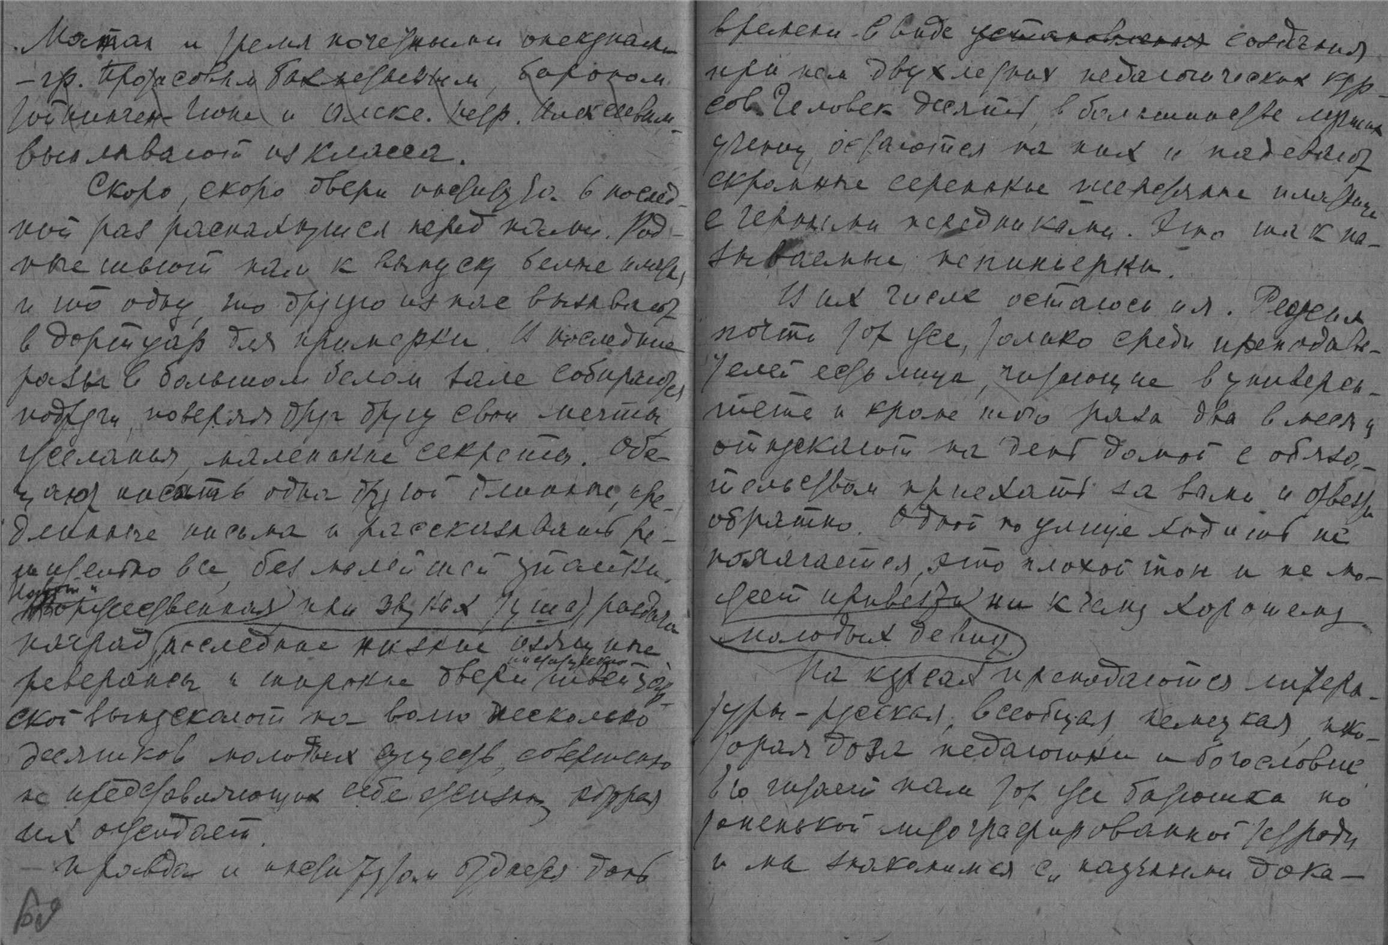 Маман и тремя почетными опекунами
– гр. Протасовым Бахметьевым, бароном
и Алекс. петр. Алексеевым.
вызывают из класса.
Скоро, скоро двери института в послед-
ний раз распахнутся перед нами. Род-
ные шьют нам к выпуску белые платья,
и то одну, то другую из нас вызывают
в дортуар для примерки. И последние
разы в большом белом зале собираются
подруги, поверяя друг другу свои мечты,
желанья, маленькие секреты. Обе-
щают писать одна другой длинные, пре-
длинные письма и рассказывать ре-
шительно все, без малейшей утайки.
Торжественная при звуках туша раздача
наград, последние низкие изящные
реверансы и широкие двери институтской швейцар-
ской выпускают на волю несколько
десятков молодых существ, совершенно
не представляющих себе жизни, которая
их ожидает.
Правда и институтом отдается дань
времени в виде установления создания
при нем двухлетних педагогических кур-
сов. Человек десять, в большинстве лучших
учениц, остаются на них и надевают
скромные серенькие шерстяные платьица
с черными передниками. Это так на-
зываемые пепиньерки.
В их числе осталась и я. Режим
почти тот же, только среди преподава-
телей есть лица, читающие в универси-
тете и кроме того раза два в месяц
отпускают на день домой с обяза-
тельством приехать за вами и отвезти
обратно. Одной по улице ходить не
полагается, это плохой тон и не мо-
жет привести ни к чему хорошему
молодых девиц.
На курсах преподаются литера-
туры – русская, всеобщая, немецкая, неко-
торая доза педагогики и богословие
Его читает нам тот же батюшка по
тоненькой литографированной тетради
и мы знакомимся с научными дока-
69